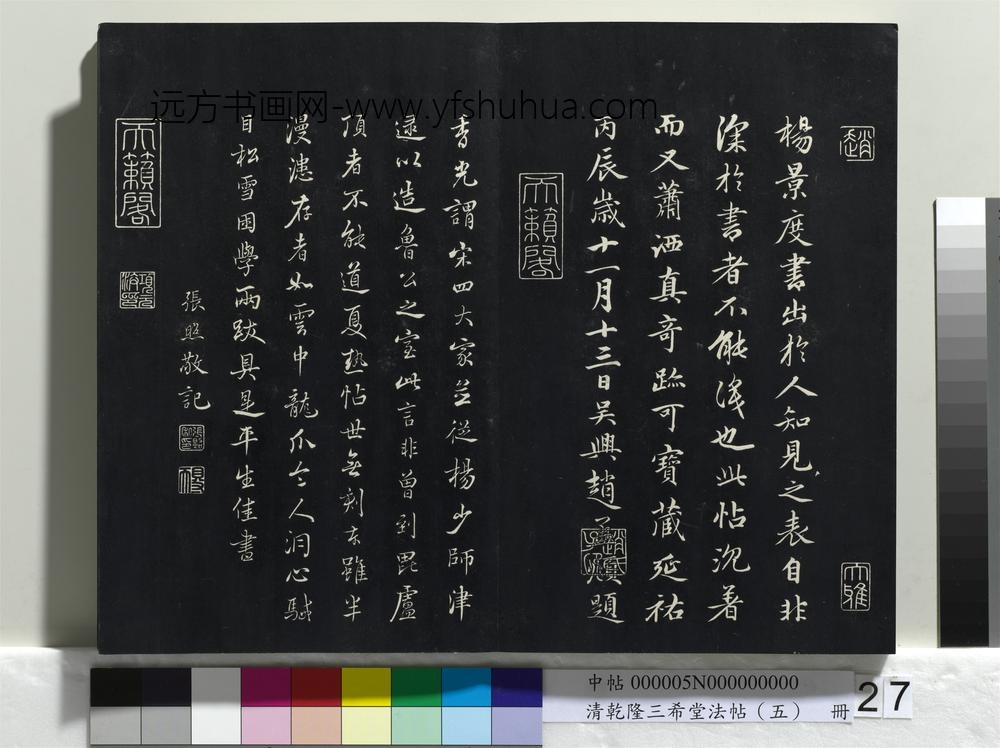 远方书画网-www.yfshuhua.com
趙
楊景度書出於人知見之表自非
深於書者不能識也此帖沉著
而又蕭洒真奇跡可寶藏延祐
丙辰歲十一月十三日吳興趙孟頫題
大雅
天籟閣
香光謂宋四大家並從楊少師津
逮以造魯公之室此言非曾到毘盧
頂者不能道夏熱帖世無刻本雖半
漫漶存者如雲中龍爪令人洞心駴
目松雪困學兩跋具是平生佳書
張照敬記
天籟閣
中帖 000005N000000000
清乾隆三希堂法帖(五) 冊
27